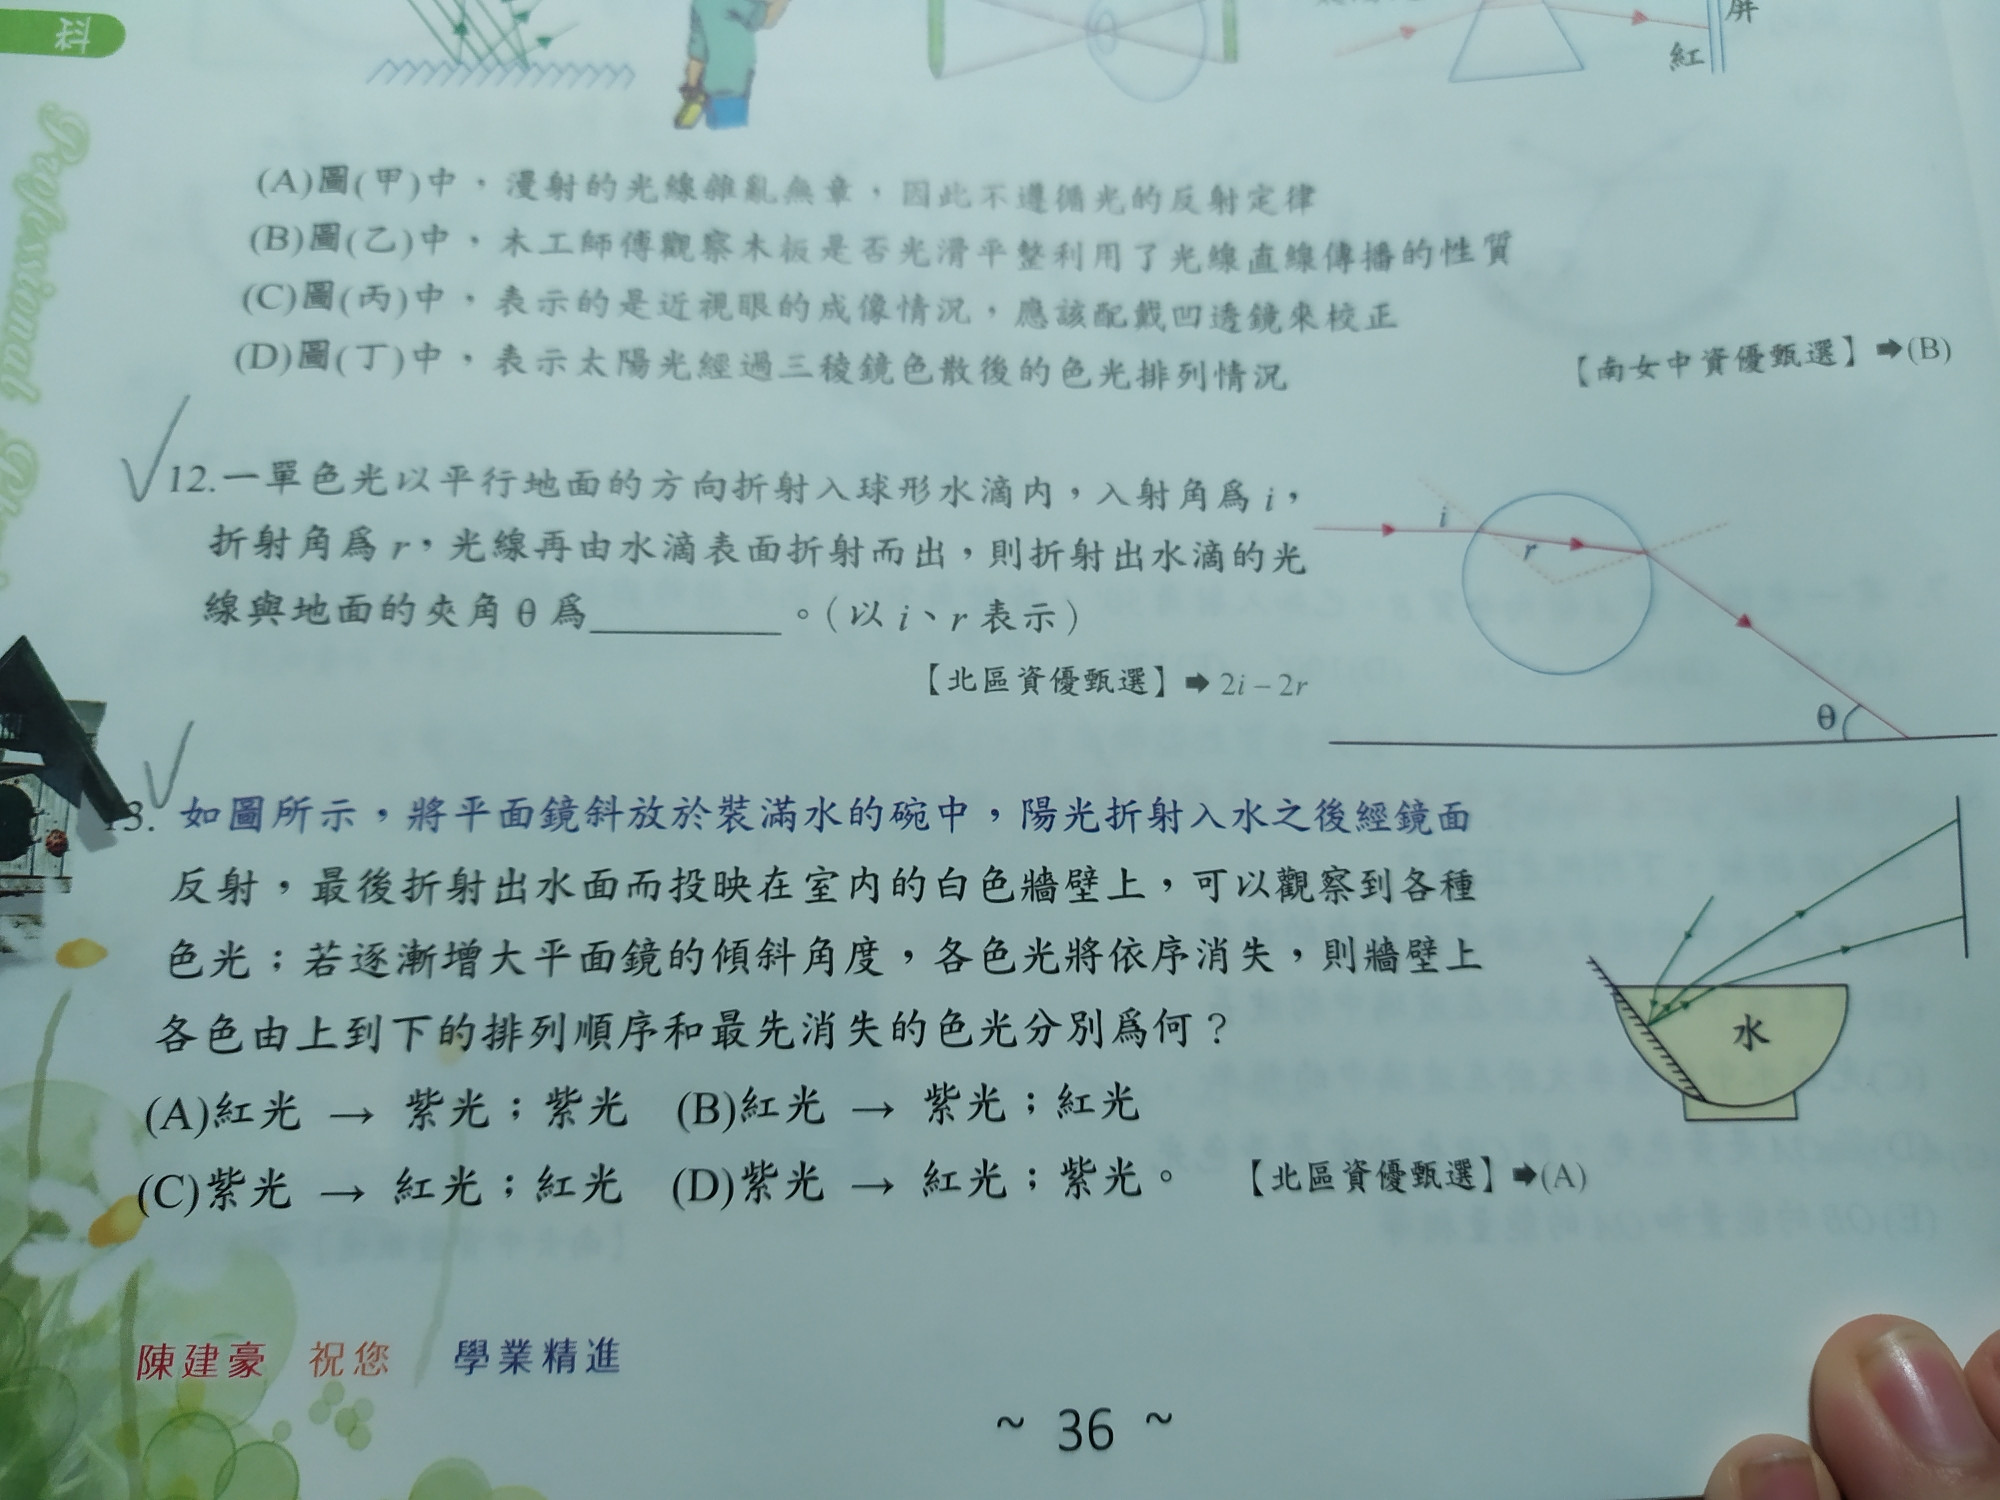 科
屏
紅
(A)圖(甲)中，漫射的光線雜亂無章，因此不遵循光的反射定律
(B)圖(乙)中，木工師傅觀察木板是否光滑平整利用了光線直線傳播的性質
(C)圖(丙)中，表示的是近視眼的成像情況，應該配戴凹透鏡來校正
(D)圖(丁)中，表示太陽光經過三稜鏡色散後的色光排列情況
【南女中資優甄選】➡(B)
12.一單色光以平行地面的方向折射入球形水滴內，入射角爲 i，
折射角爲 r，光線再由水滴表面折射而出，則折射出水滴的光
線與地面的夾角 θ 爲________。(以 i、r 表示)
【北區資優甄選】➡ 2i – 2r
i
r
θ
13. 如圖所示，將平面鏡斜放於裝滿水的碗中，陽光折射入水之後經鏡面
反射，最後折射出水面而投映在室內的白色牆壁上，可以觀察到各種
色光；若逐漸增大平面鏡的傾斜角度，各色光將依序消失，則牆壁上
各色由上到下的排列順序和最先消失的色光分別爲何？
(A)紅光 → 紫光；紫光 (B)紅光 → 紫光；紅光
(C)紫光 → 紅光；紅光 (D)紫光 → 紅光；紫光。 【北區資優甄選】➡(A)
水
陳建豪 祝您 學業精進
~ 36 ~
Professional